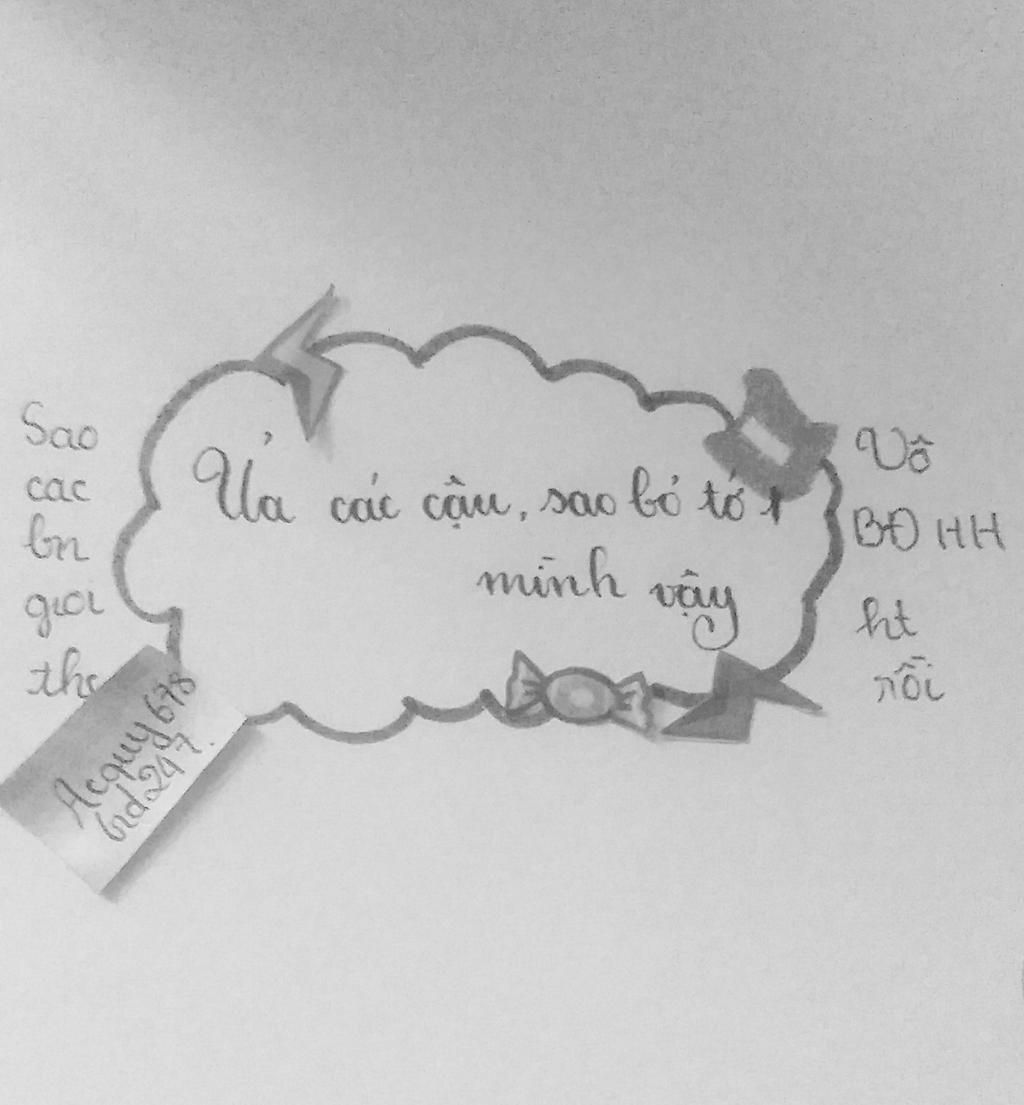 Sao
các
bn
giỏi
thế
Ủa các cậu, sao bỏ tớ 1
mình vậy
Vô
BĐ HH
ht
rồi
Acquy678
brd247.